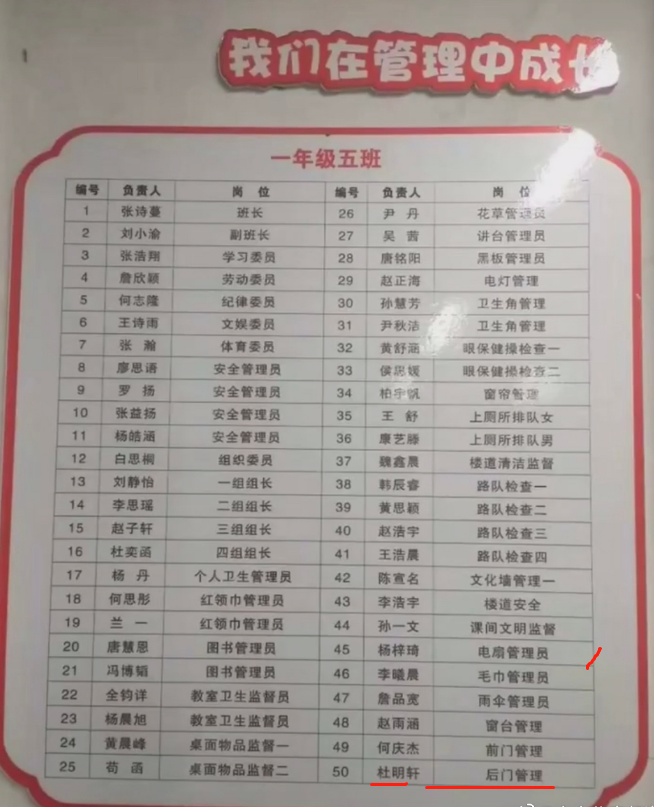 我们在管理中成长
一年级五班
编号 负责人 岗位 编号 负责人 岗位
1 张诗蔓 班长 26 尹丹 花草管理员
2 刘小渝 副班长 27 吴茜 讲台管理员
3 张浩翔 学习委员 28 唐铭阳 黑板管理员
4 詹欣颖 劳动委员 29 赵正海 电灯管理
5 何志隆 纪律委员 30 孙慧芳 卫生角管理
6 王诗雨 文娱委员 31 尹秋洁 卫生角管理
7 张瀚 体育委员 32 黄舒涵 眼保健操检查一
8 廖思语 安全管理员 33 侯思媛 眼保健操检查二
9 罗扬 安全管理员 34 柏宇帆 窗帘管理
10 张益扬 安全管理员 35 王舒 上厕所排队女
11 杨皓涵 安全管理员 36 康艺藤 上厕所排队男
12 白思桐 组织委员 37 魏鑫晨 楼道清洁监督
13 刘静怡 一组组长 38 韩辰睿 路队检查一
14 李思瑶 二组组长 39 黄思颖 路队检查二
15 赵子轩 三组组长 40 赵浩宇 路队检查三
16 杜奕函 四组组长 41 王浩晨 路队检查四
17 杨丹 个人卫生管理员 42 陈宣名 文化墙管理一
18 何思彤 红领巾管理员 43 李浩宇 楼道安全
19 兰一 红领巾管理员 44 孙一文 课间文明监督
20 唐慧恩 图书管理员 45 杨梓琦 电扇管理员
21 冯博韬 图书管理员 46 李曦晨 毛巾管理员
22 全钧详 教室卫生监督员 47 詹品宽 雨伞管理员
23 杨晨旭 教室卫生监督员 48 赵雨涵 窗台管理
24 黄晨峰 桌面物品监督一 49 何庆杰 前门管理
25 苟函 桌面物品监督二 50 杜明轩 后门管理